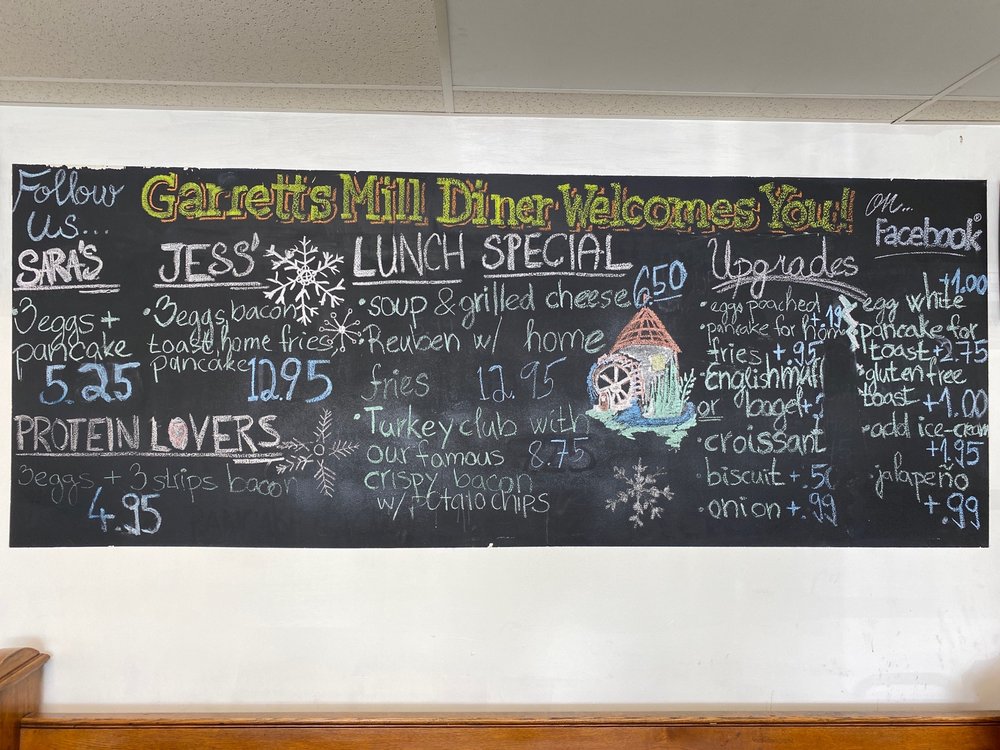 Follow
us...
Garrett's Mill Diner Welcomes You!
on...
Facebook
SARA'S
3eggs +
pancake
5.25
JESS'
•3eggs, bacon
toast, home fries,
pancake 12.95
PROTEIN LOVERS
3eggs + 3 strips bacon
4.95
LUNCH SPECIAL
•soup & grilled cheese 6.50
•Reuben w/ home
fries 12.95
•Turkey club with
our famous 8.75
crispy bacon
w/ potato chips
Upgrades
•eggs poached
•pancake for home
fries +.95
•English muff
or bagel
•croissant
biscuit +.50
•onion +.99
+1.00
egg white
pancake for
toast +2.75
•gluten free
toast +1.00
•add ice-cream
+1.95
jalapeño
+.99